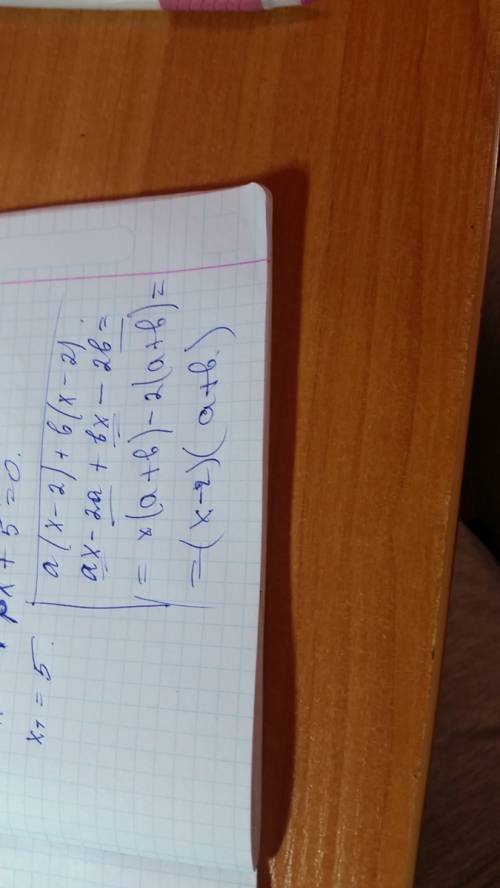 px + 5 = 0.
x₁ = 5.
a(x-2)+b(x-2).
ax-2a+bx-2b=
= x(a+b)-2(a+b)=
=(x-2)(a+b)